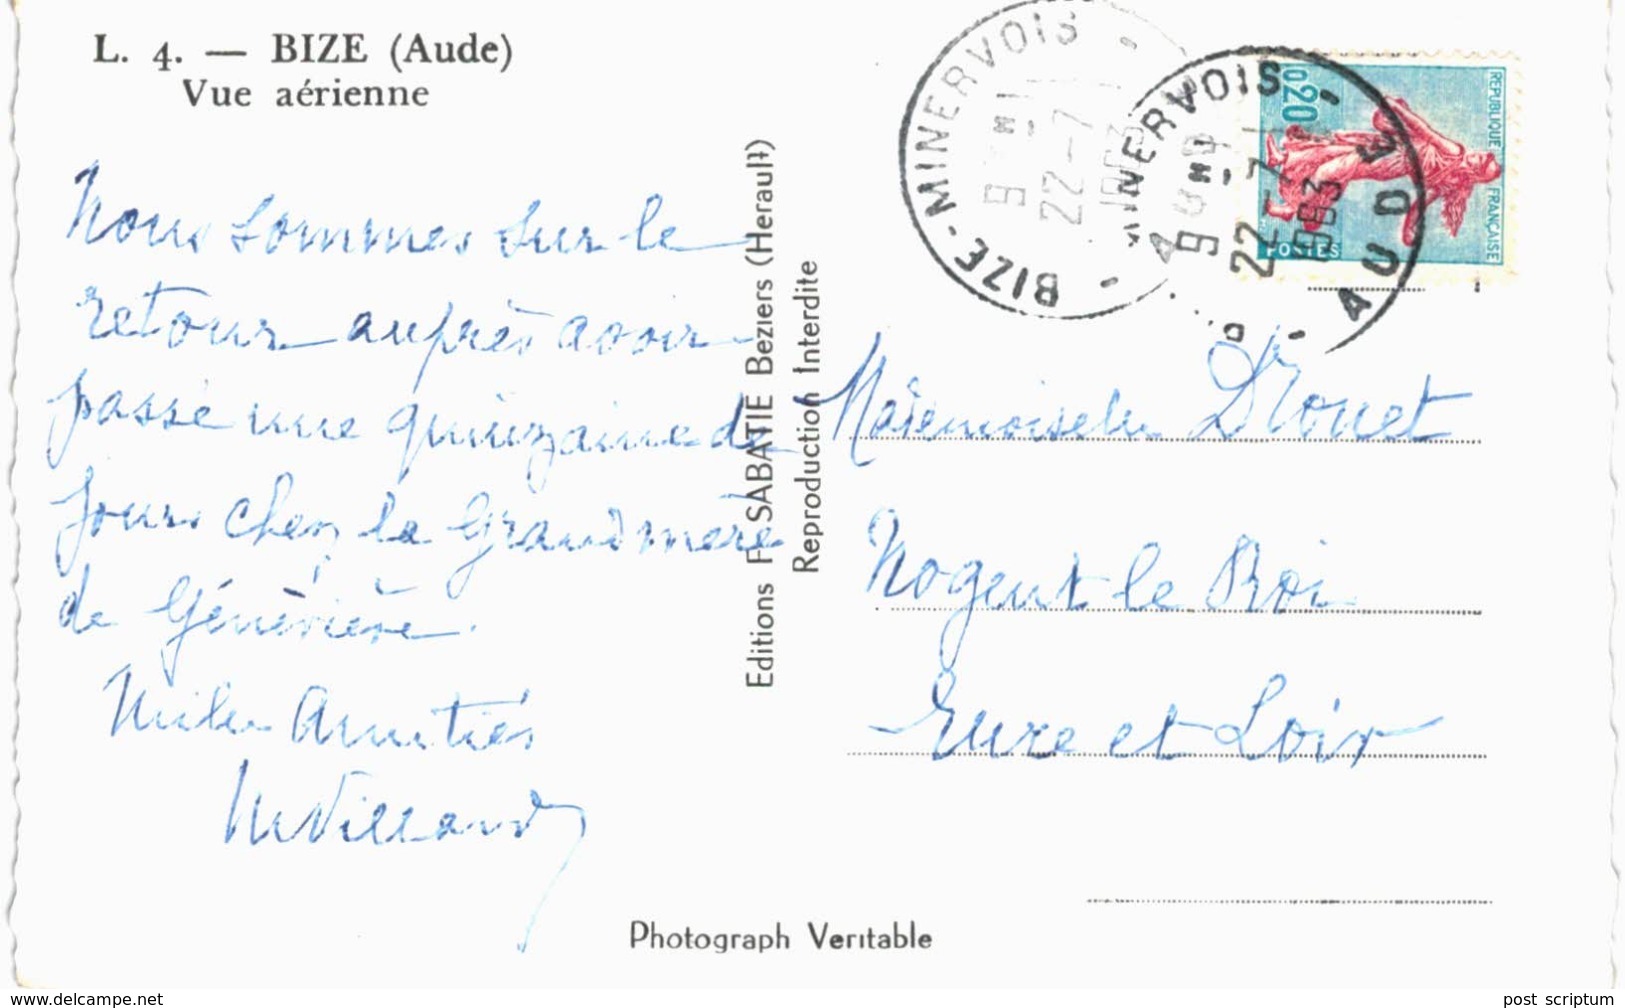 L. 4. — BIZE (Aude)
Vue aérienne
Nous sommes sur le
retour auprès avoir
passé une quinzaine de
jours chez la Grand mère
de Généviève.
Milles Amitiés
MVillard
Editions F SABATIE Beziers (Herault)
Reproduction Interdite
BIZE-MINERVOIS
9 H
22-7
1963
MINERVOIS
AUDE
9 H
22-7
1963
0,20
REPUBLIQUE FRANÇAISE
POSTES
Mademoiselle Drouet
Nogent le Roi
Eure et Loir
Photograph Veritable
www.delcampe.net
post_scriptum